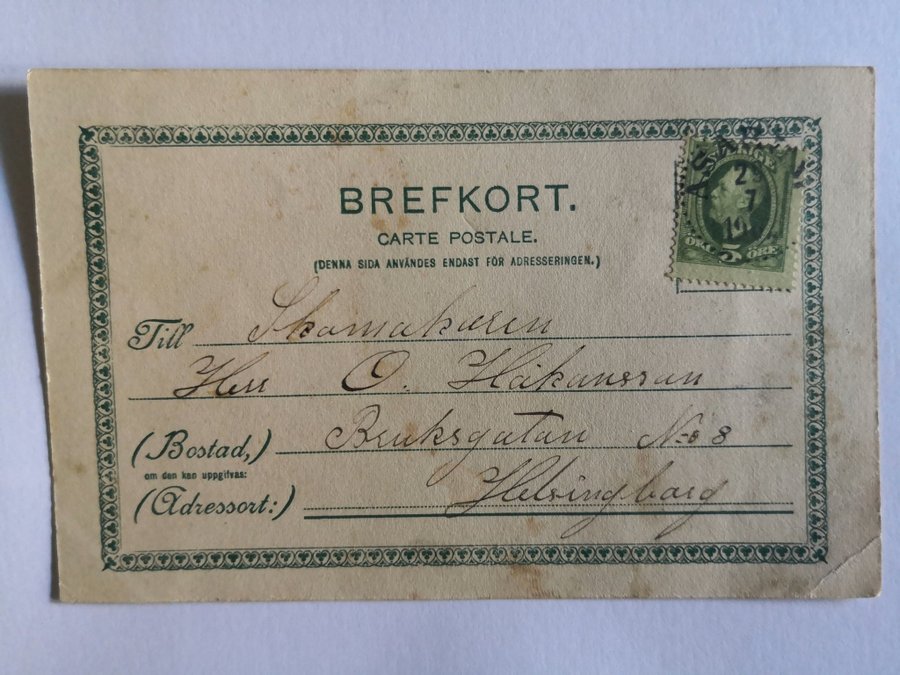 BREFKORT.
CARTE POSTALE.
(DENNA SIDA ANVÄNDES ENDAST FÖR ADRESSERINGEN.)
2
7
19
5 ÖRE
Till Skomakaren
Herr O. Håkansson
(Bostad,) Bruksgatan No 8
om den kan uppgifvas:
(Adressort:) Helsingborg